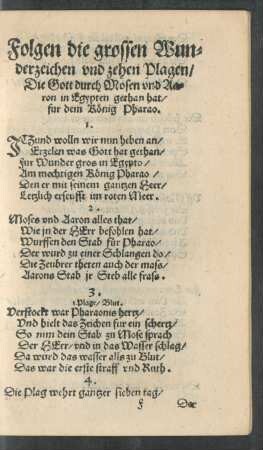 Folgen die grossen Wun-
derzeichen vnd zehen Plagen/
Die Gott durch Mosen vnd Aa-
ron in Egypten gethan hat/
für dem König Pharao.
1.
JTZund wolln wir nun heben an/
Erzelen was Gott hat gethan/
Für Wunder gros in Egypto/
Am mechtigen König Pharao/
Den er mit seinem gantzen Heer/
Letzlich erseufft im roten Meer.
2.
Moses vnd Aaron alles that/
Wie jn der HErr befohlen hat/
Wurffen den Stab für Pharao/
Der wurd zu einer Schlangen do/
Die Zeubrer theten auch der mass/
Aarons Stab jr Steb alle frass.
3.
1. Plage/ Blut.
Verstockt war Pharaonis hertz/
Vnd hielt das Zeichen für ein schertz/
So nim dein Stab zu Mose sprach
Der HErr/ vnd in das Wasser schlag/
Da wurd das wasser alls zu Blut/
Das war die erste straff vnd Ruth.
4.
Die Plag wehrt gantzer sieben tag/
Das